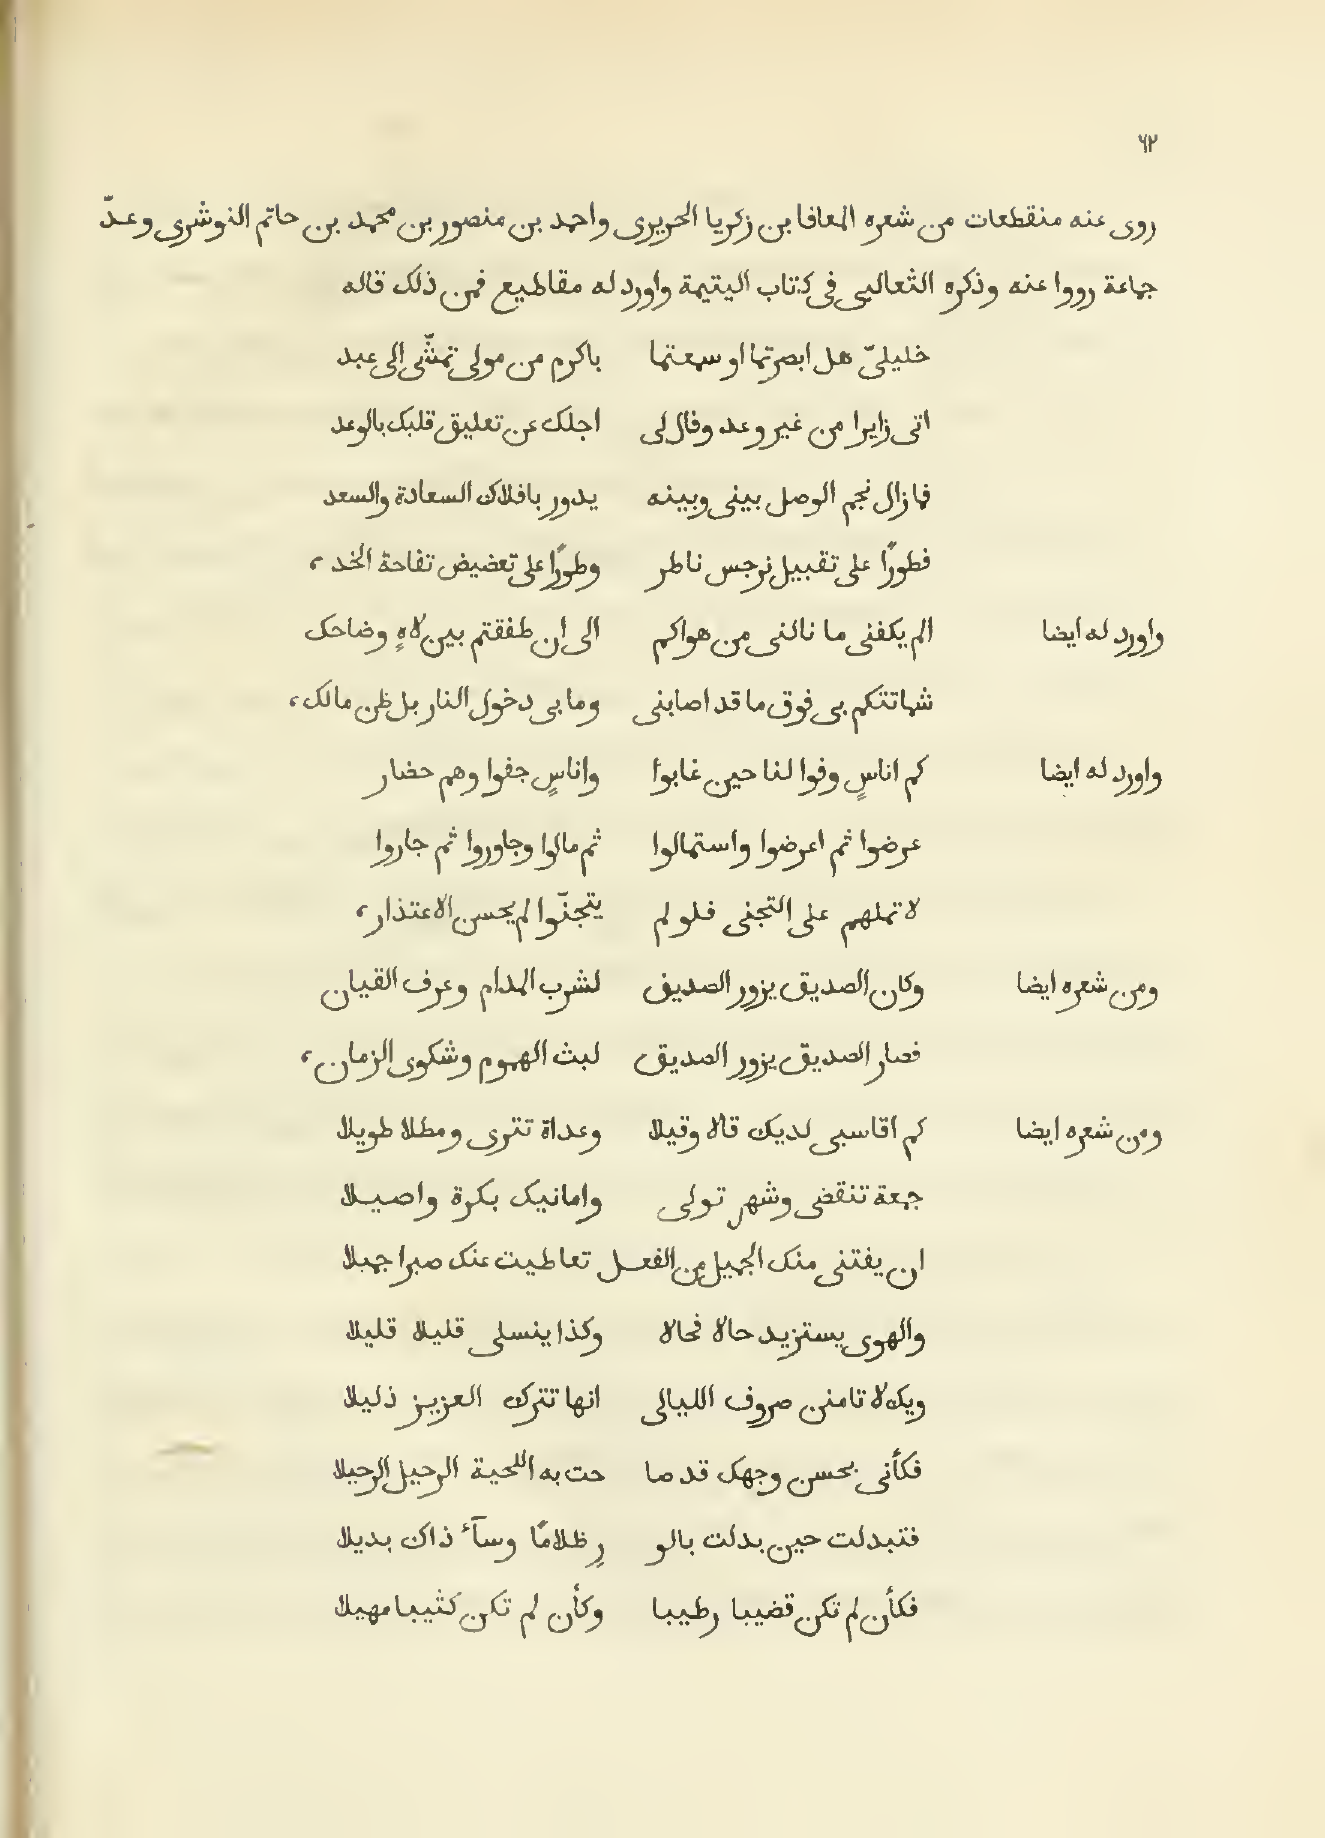 ٦٢
روى عنه منقطعات من شعره المعافا بن زكريا الحريرى واحمد بن منصور بن محمد بن حاتم النوشرى وعدّ
جماعة رووا عنه وذكره الثعالبى فى كتاب اليتيمة واورد له مقاطيع فمن ذلك قاله
خليلىّ هل ابصرتما او سمعتما باكرم من مولى تمشّى الى عبد
اتى زايرا من غير وعد وقال لى اجلك عن تعليق قلبك بالوعد
فما زال نجم الوصل بينى وبينه يدور بافلاك السعادة والسعد
فطورًا على تقبيل نرجس ناطر وطورًا على تعضيض تفاحة الخد ،
واورد له ايضا الم يكفنى ما نالنى من هواكم الى ان طفقتم بين لاهٍ وضاحك
شماتتكم بى فوق ما قد اصابنى وما بى دخول النار بل طن مالك ،
واورد له ايضا كم اناسٍ وفوا لنا حين غابوا واناسٍ جفوا وهم حضار
عرضوا ثم اعرضوا واستمالوا ثم مالوا وجاوروا ثم جاروا
لا تملهم على التجنى فلو لم يتجنّوا لم يحسن الاعتذار ،
ومن شعره ايضا وكان الصديق يزور الصديق لشرب المدام وعرف القيان
فصار الصديق يزور الصديق لبث الهموم وشكوى الزمان ،
ومن شعره ايضا كم اقاسى لديك قالا وقيلا وعداة تترى ومطلا طويلا
جمعة تنقضى وشهر تولى وامانيك بكرة واصيلا
ان يفتنى منك الجميل من الفعل تعاطيت عنك صبرا جميلا
والهوى يستزيد حالا فحالا وكذا ينسلى قليلا قليلا
ويك لا تامنن صروف الليالى انها تترك العزيز ذليلا
فكأنى بحسن وجهك قد صا حت به اللحية الرحيل الرحيلا
فتبدلت حين بدلت بالنو رٍ ظلامًا وسآء ذاك بديلا
فكأن لم تكن قضيبا رطيبا وكأن لم تكن كثيبا مهيلا